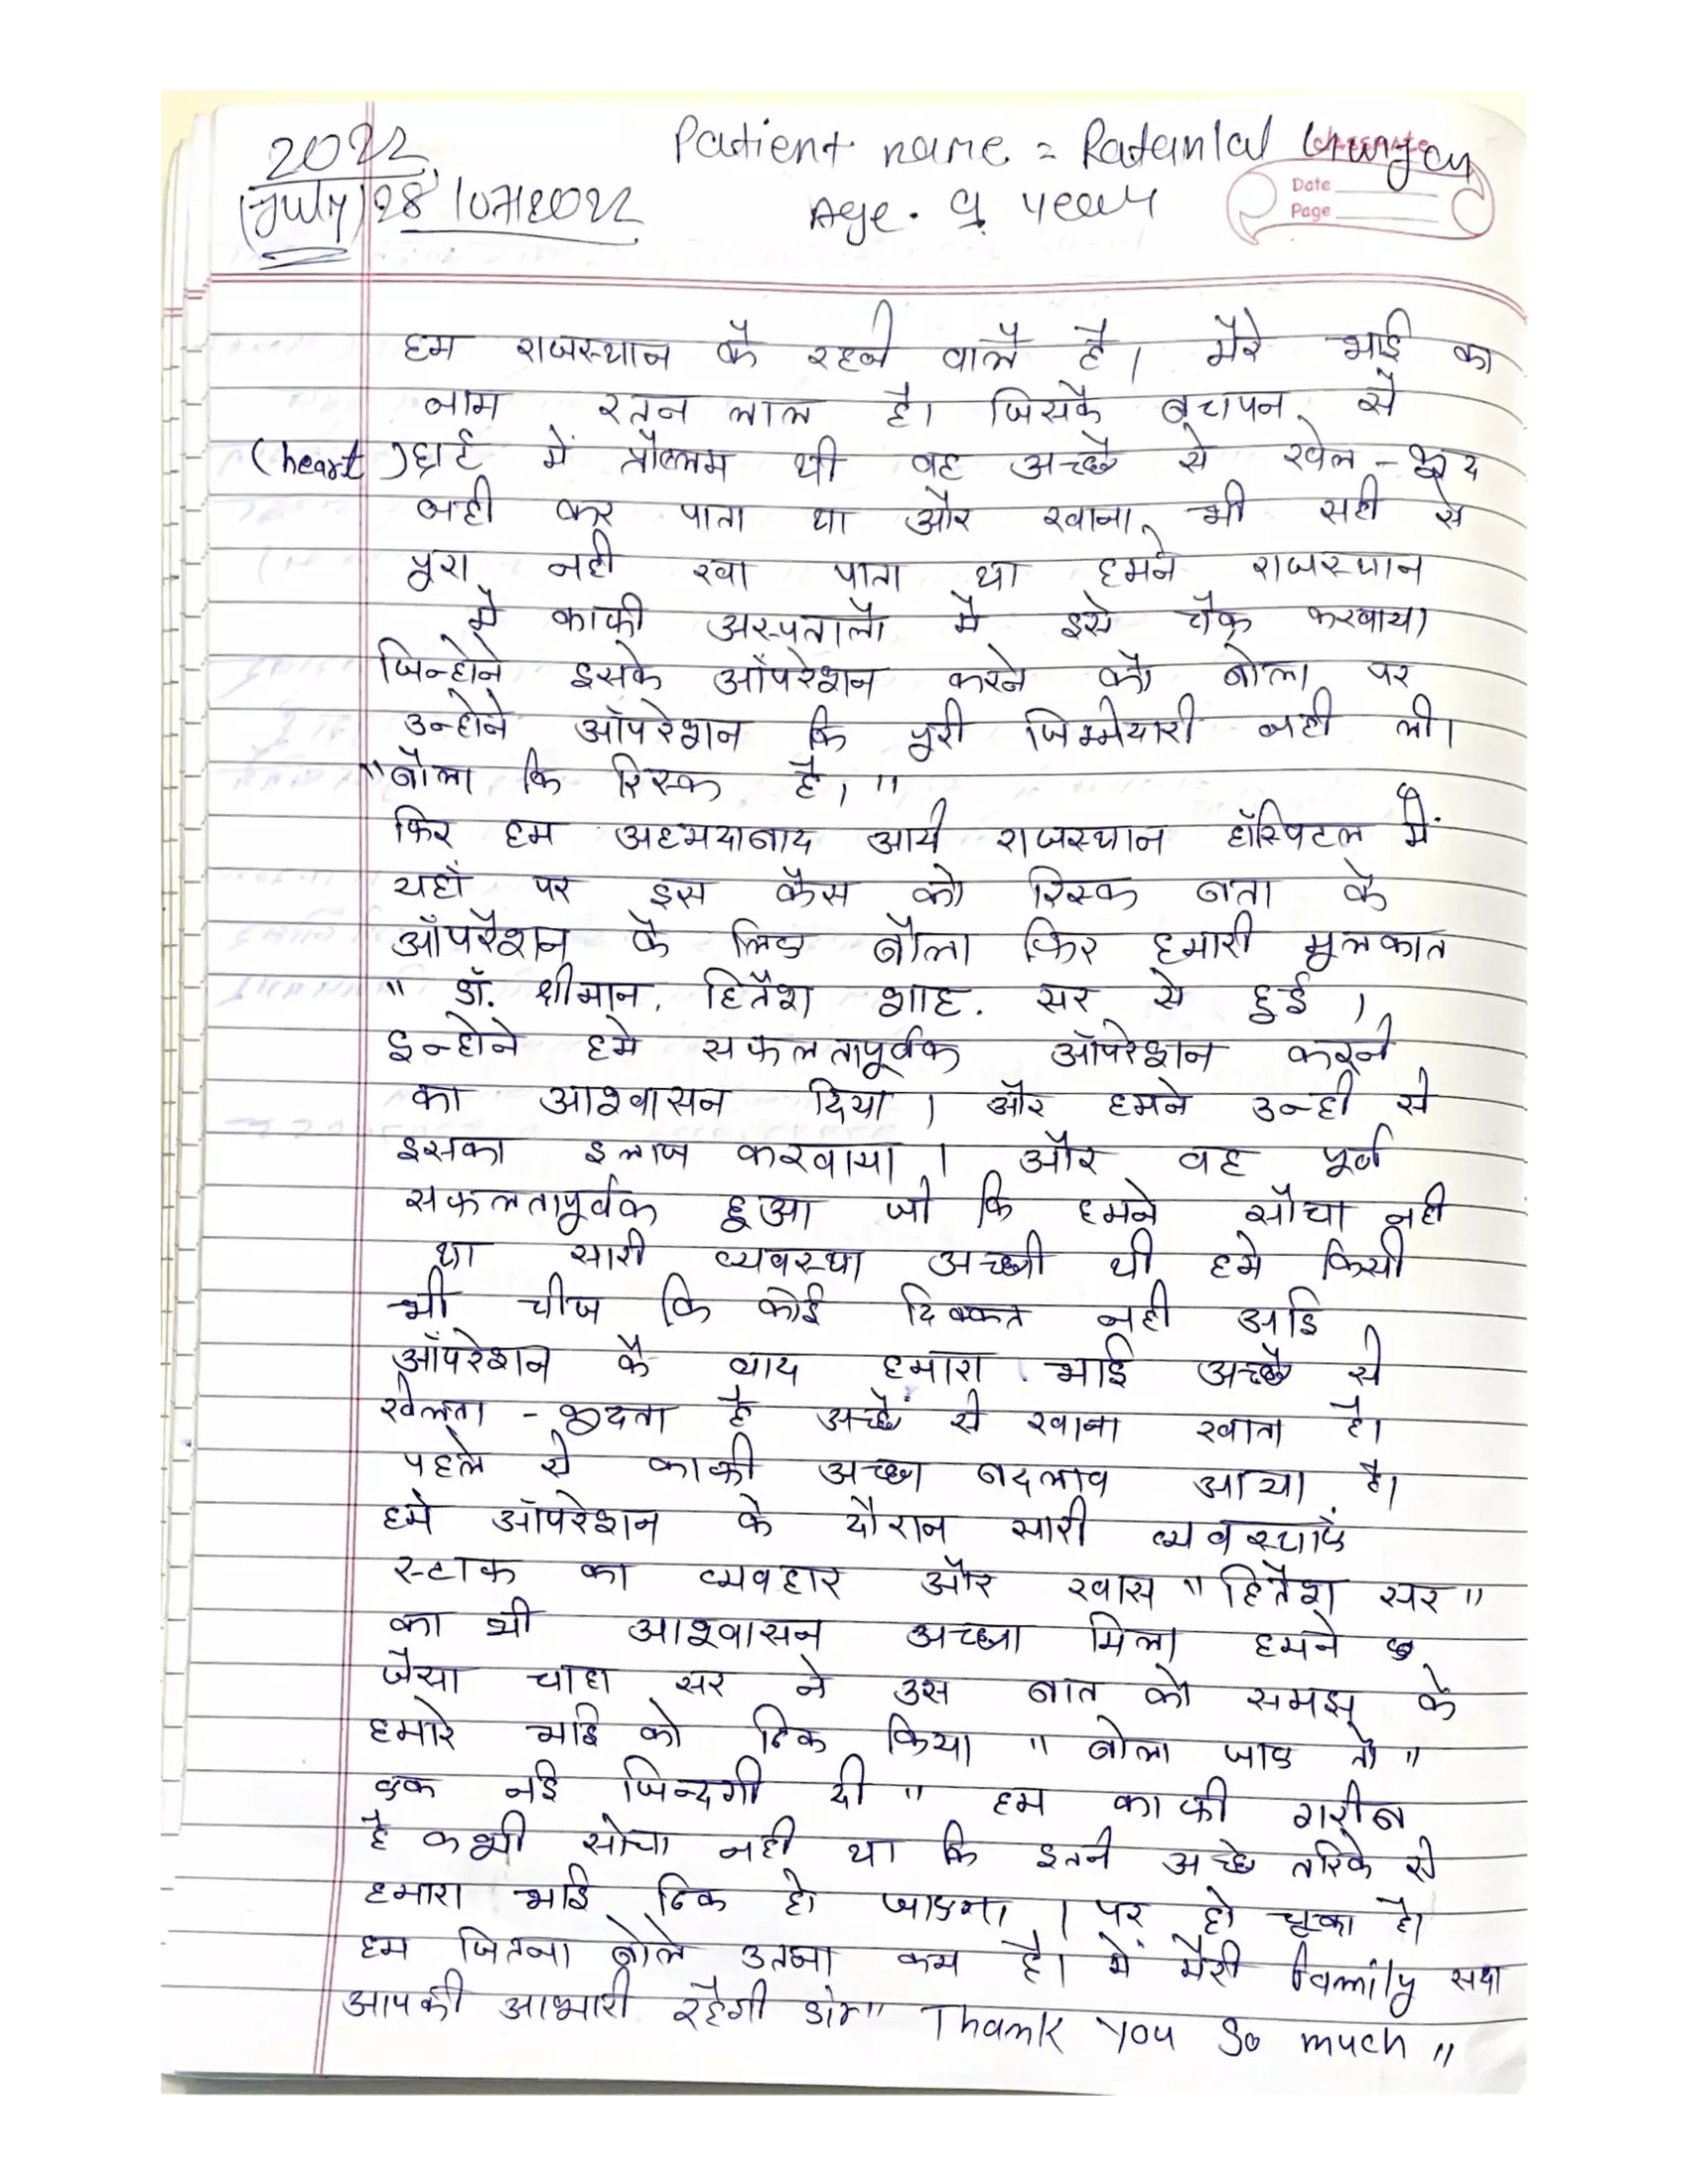 2022
(July) 28/07/2022
Patient name = Ratanlal Gurjar
Age. 9 year
classmate
Date
Page
हम राजस्थान कै रहने वालै है। मैरे भाई का
नाम रतन लाल है। जिसकै बचापन से
(heart) हार्ट में प्रौब्लम थी वह अच्छै से खेल - कूद
नही कर पाता था और खाना भी सही से
पूरा नही खा पाता था हमने राजस्थान
मै काफी अस्पतालौ मै इसे चैक करवाया
जिन्होने इसके ऑपरेशन करने को बोला पर
उन्होने ऑपरेशन कि पूरी जिम्मेयारी नही ली।
"बौला कि रिस्क है। "
फिर हम अहमदाबाद आये राजस्थान हॉस्पिटल में
यहाँ पर इस कैस को रिस्क बता कै
ऑपरैशन कै लिए बौला फिर हमारी मूलकात
" डॉ. श्रीमान. हितैश शाह. सर से हुई ।
इन्होने हमे सफलतापूर्वक ऑपरेशन करने
का आश्वासन दिया । और हमने उन्ही से
इसका इलाज करवाया । और वह पूर्व
सफलतापूर्वक हूआ जो कि हमने सौचा नही
था सारी व्यवस्था अच्छी थी हमे किसी
भी चीज कि कोई दिक्कत नही आइ
ऑपरेशन कै बाद हमारा भाई अच्छै से
खेलता - कूदता है अच्छै से खाना खाता है।
पहले से काफी अच्छा बदलाव आया है।
हमे ऑपरेशन के दौरान सारी व्यवस्थाएं
स्टाफ का व्यवहार और खास "हितैश सर"
का भी आश्वासन अच्छा मिला हमने
जैसा चाहा सर ने उस बात को समझ कै
हमारे भाई को ठिक किया " बोला जाए तो "
एक नई जिन्दगी दी " हम काफी गरीब
है कभी सोचा नही था कि इतने अच्छे तरिके से
हमारा भाई ठिक हो जाएगा । पर हो चूका है।
हम जितना बोले उतना कम है। मे मैरी family सदा
आपकी आभारी रहैगी " Thank You So much "